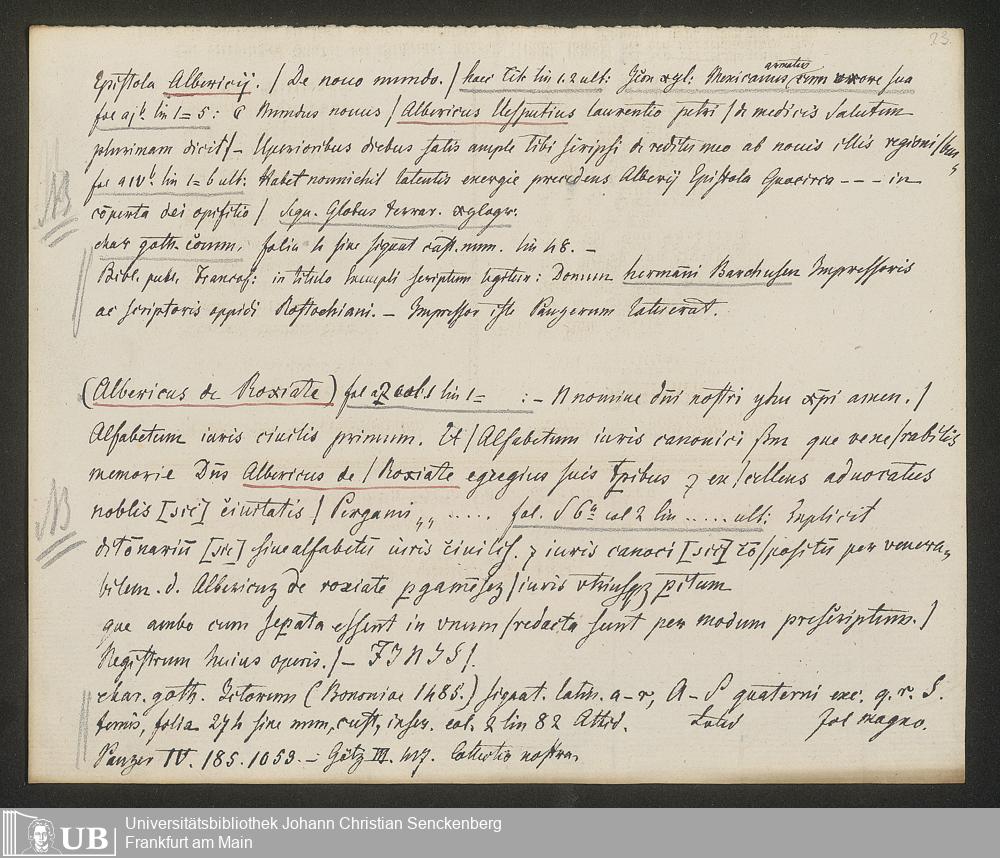 23.
Epistola Albericij. / De nouo mundo. / haec tit: lin 1.2 ult: Icon xyl: Mexicanus armatus cum uxore sua
fol aj b. lin 1=5: Mundus nouus / Albericus Uesputius laurentio petri / de medicis salutem
plurimam dicit / – Uperioribus diebus satis ample tibi scripsi de reditu meo ab nouis illis regioni/bus
fol aIV b. lin 1=6 ult: Habet nonnichil latentis energie precedens Alberij Epistola Quocirca --- in
NB
cōperta dei opifitio / Sequ. Globus terrar. xylogr.
char goth. comm. folia 4 sine signat cust. num. lin 48. –
Bibl. publ. Francof: in titulo exempli scriptum legitur: Donum hermāni Barchusen Impressoris
ac scriptoris oppidi Rostochiani. – Impressor iste Panzerum latuerat.
(Albericus de Roxiate) fol a2 col: 1 lin 1= : – N nomine dn̄i nostri yhu xp̄i amen. /
Alfabetum iuris ciuilis primum. Et / Alfabetum iuris canonici que vene/rabilis
memorie Dn̄s Albericus de / Roxiate egregius suis tpibus ⁊ ex/cellens aduocatus
NB
noblis [sic] ciuitatis / Pergami „ ..... fol. S 6a col 2 lin ..... ult: Explicit
ditōnariū [sic] siue alfabetū iuris ciuilis. ⁊ iuris canoci [sic] cō/positū per venera„
bilem. d. Albericuʒ de roxiate pgamēseʒ / iuris vtriusqʒ pitum
que ambo cum sepata essent in vnum / redacta sunt per modum prescriptum. /
Registrum huius operis. / – FINIS /.
char. goth. Ictorum (Bononiae 1485.) signat. latin. a–r, A–S quaterni exc. q. r. S.
ternis, folia 274 sine num, cust, inscr. col. 2 lin 82 fol magno.
Panzer IV. 185. 1059. – Götz III. Collectio nostra.
UB
Universitätsbibliothek Johann Christian Senckenberg
Frankfurt am Main